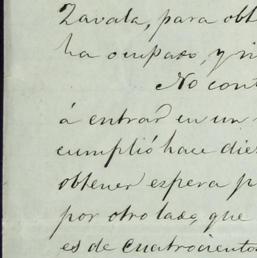 Zavala, para obt
ha ocupado, y
No cont
á entrar en un
cumplió hace die
obtener espera p
por otro lado, que
es de cuatrociento